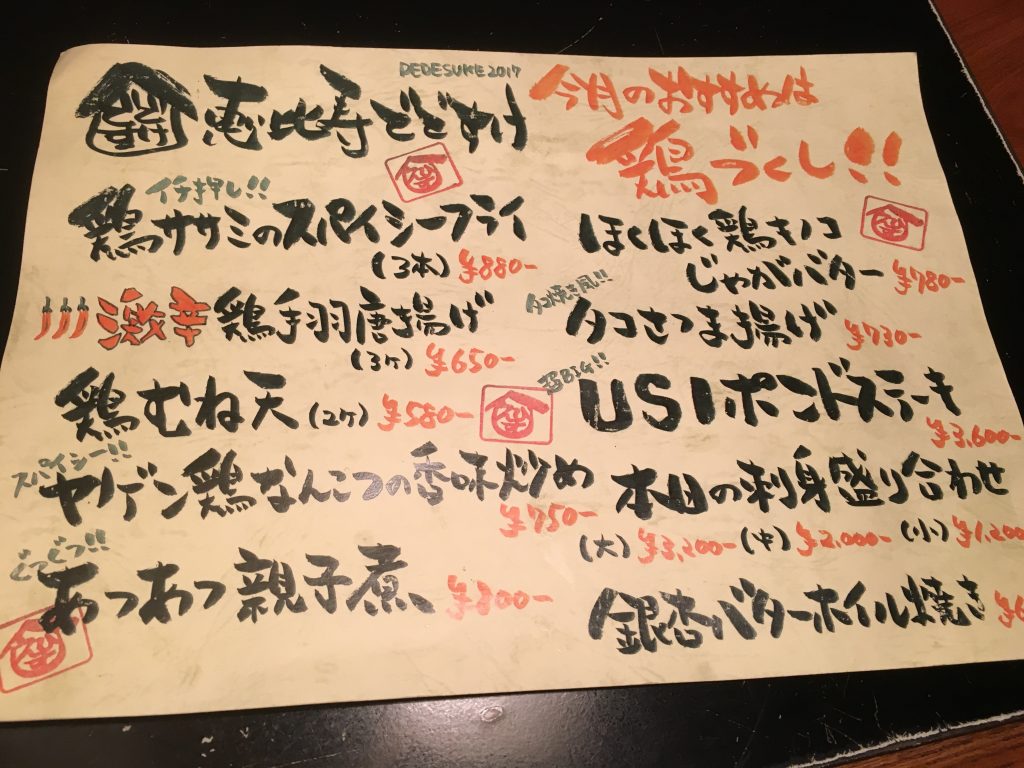 DEDESUKE 2017
恵比寿どどすけ
今月のおすすめは
鶏づくし!!
イチ押し!!
鶏ササミのスパイシーフライ
(3本) ¥880-
激辛 鶏手羽唐揚げ
(3ヶ) ¥650-
鶏むね天 (2ヶ) ¥580-
スパイシー!!
ヤゲン鶏なんこつの香味炒め
¥750-
あつあつ親子煮 ¥800-
ほくほく鶏キノコ
じゃがバター ¥780-
タコ焼き風!!
タコさつま揚げ ¥730-
超BIG!!
US1ポンドステーキ
¥3,600-
本日の刺身盛り合わせ
(大) ¥3,200- (中) ¥2,000- (小) ¥1,200
銀杏バターホイル焼き